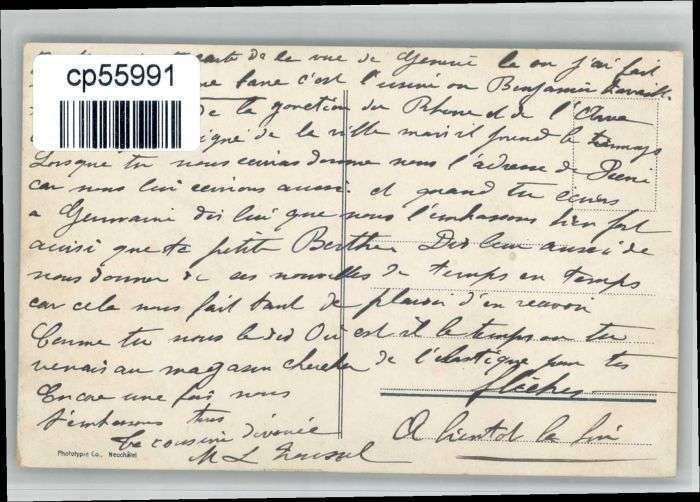 cp55991
carte de la rue de Genève là ou j'ai fait
c'est l'usine ou Benjamin travaille
de la gonction du Rhône et de l'Arve
de la ville mais il prend le tramways
Lorsque tu nous ecriras donne nous l'adresse de
car nous lui ecrirons aussi et quand tu écriras
a Germaine dis lui que nous l'embrassons bien fort
ainsi que ta petite Berthe Dis leur aussi de
nous donner de ses nouvelles de temps en temps
car cela nous fait tant de plaisir d'en recevoir
Comme tu nous le dis Où est il le temps ou tu
venais au magasin chercher de l'élastique pour tes
flèches
Encore une fois nous
t'embrassons tous
Ta cousine dévouée
M L
A bientot la fin
Phototypie Co., Neuchâtel